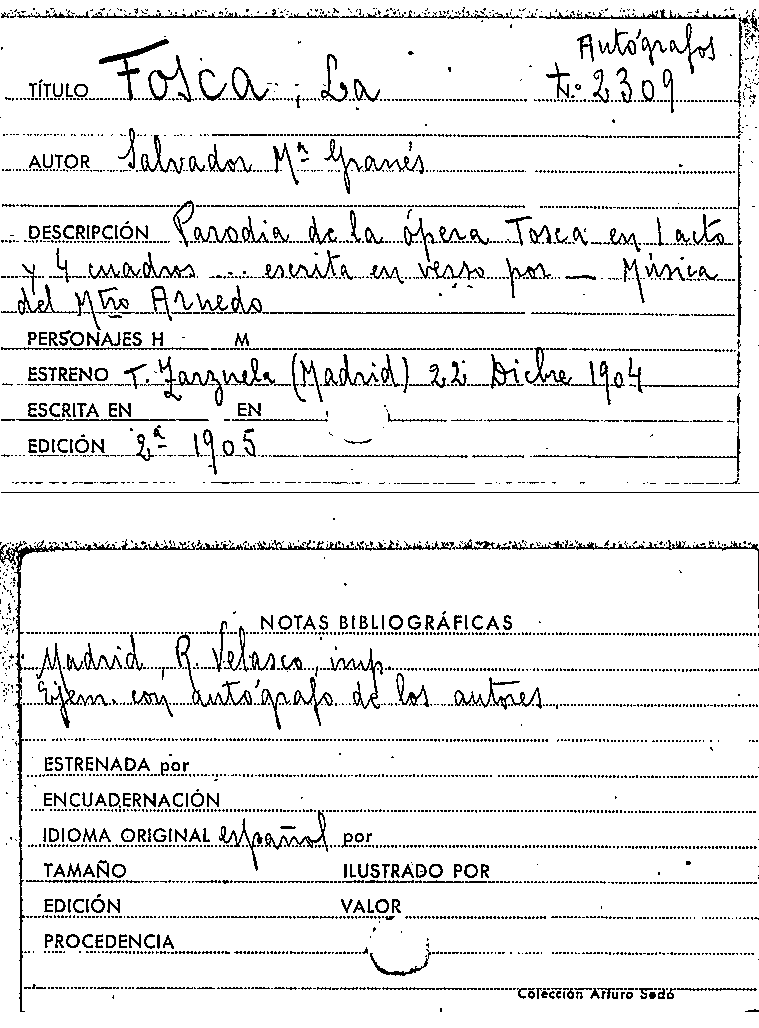 Autógrafos
TÍTULO Fosca, La N.º 2309
AUTOR Salvador Mª Granés
DESCRIPCIÓN Parodia de la ópera Tosca en 1 acto
y 4 cuadros ... escrita en verso por — Música
del Mtro Arnedo
PERSONAJES H M
ESTRENO T. Zarzuela (Madrid) 22 Dicbre 1904
ESCRITA EN EN
EDICIÓN 2ª 1905
NOTAS BIBLIOGRÁFICAS
Madrid, R. Velasco, imp.
Ejem. con autógrafo de los autores.
ESTRENADA por
ENCUADERNACIÓN
IDIOMA ORIGINAL español por
TAMAÑO ILUSTRADO POR
EDICIÓN VALOR
PROCEDENCIA
Colección Arturo Sedó